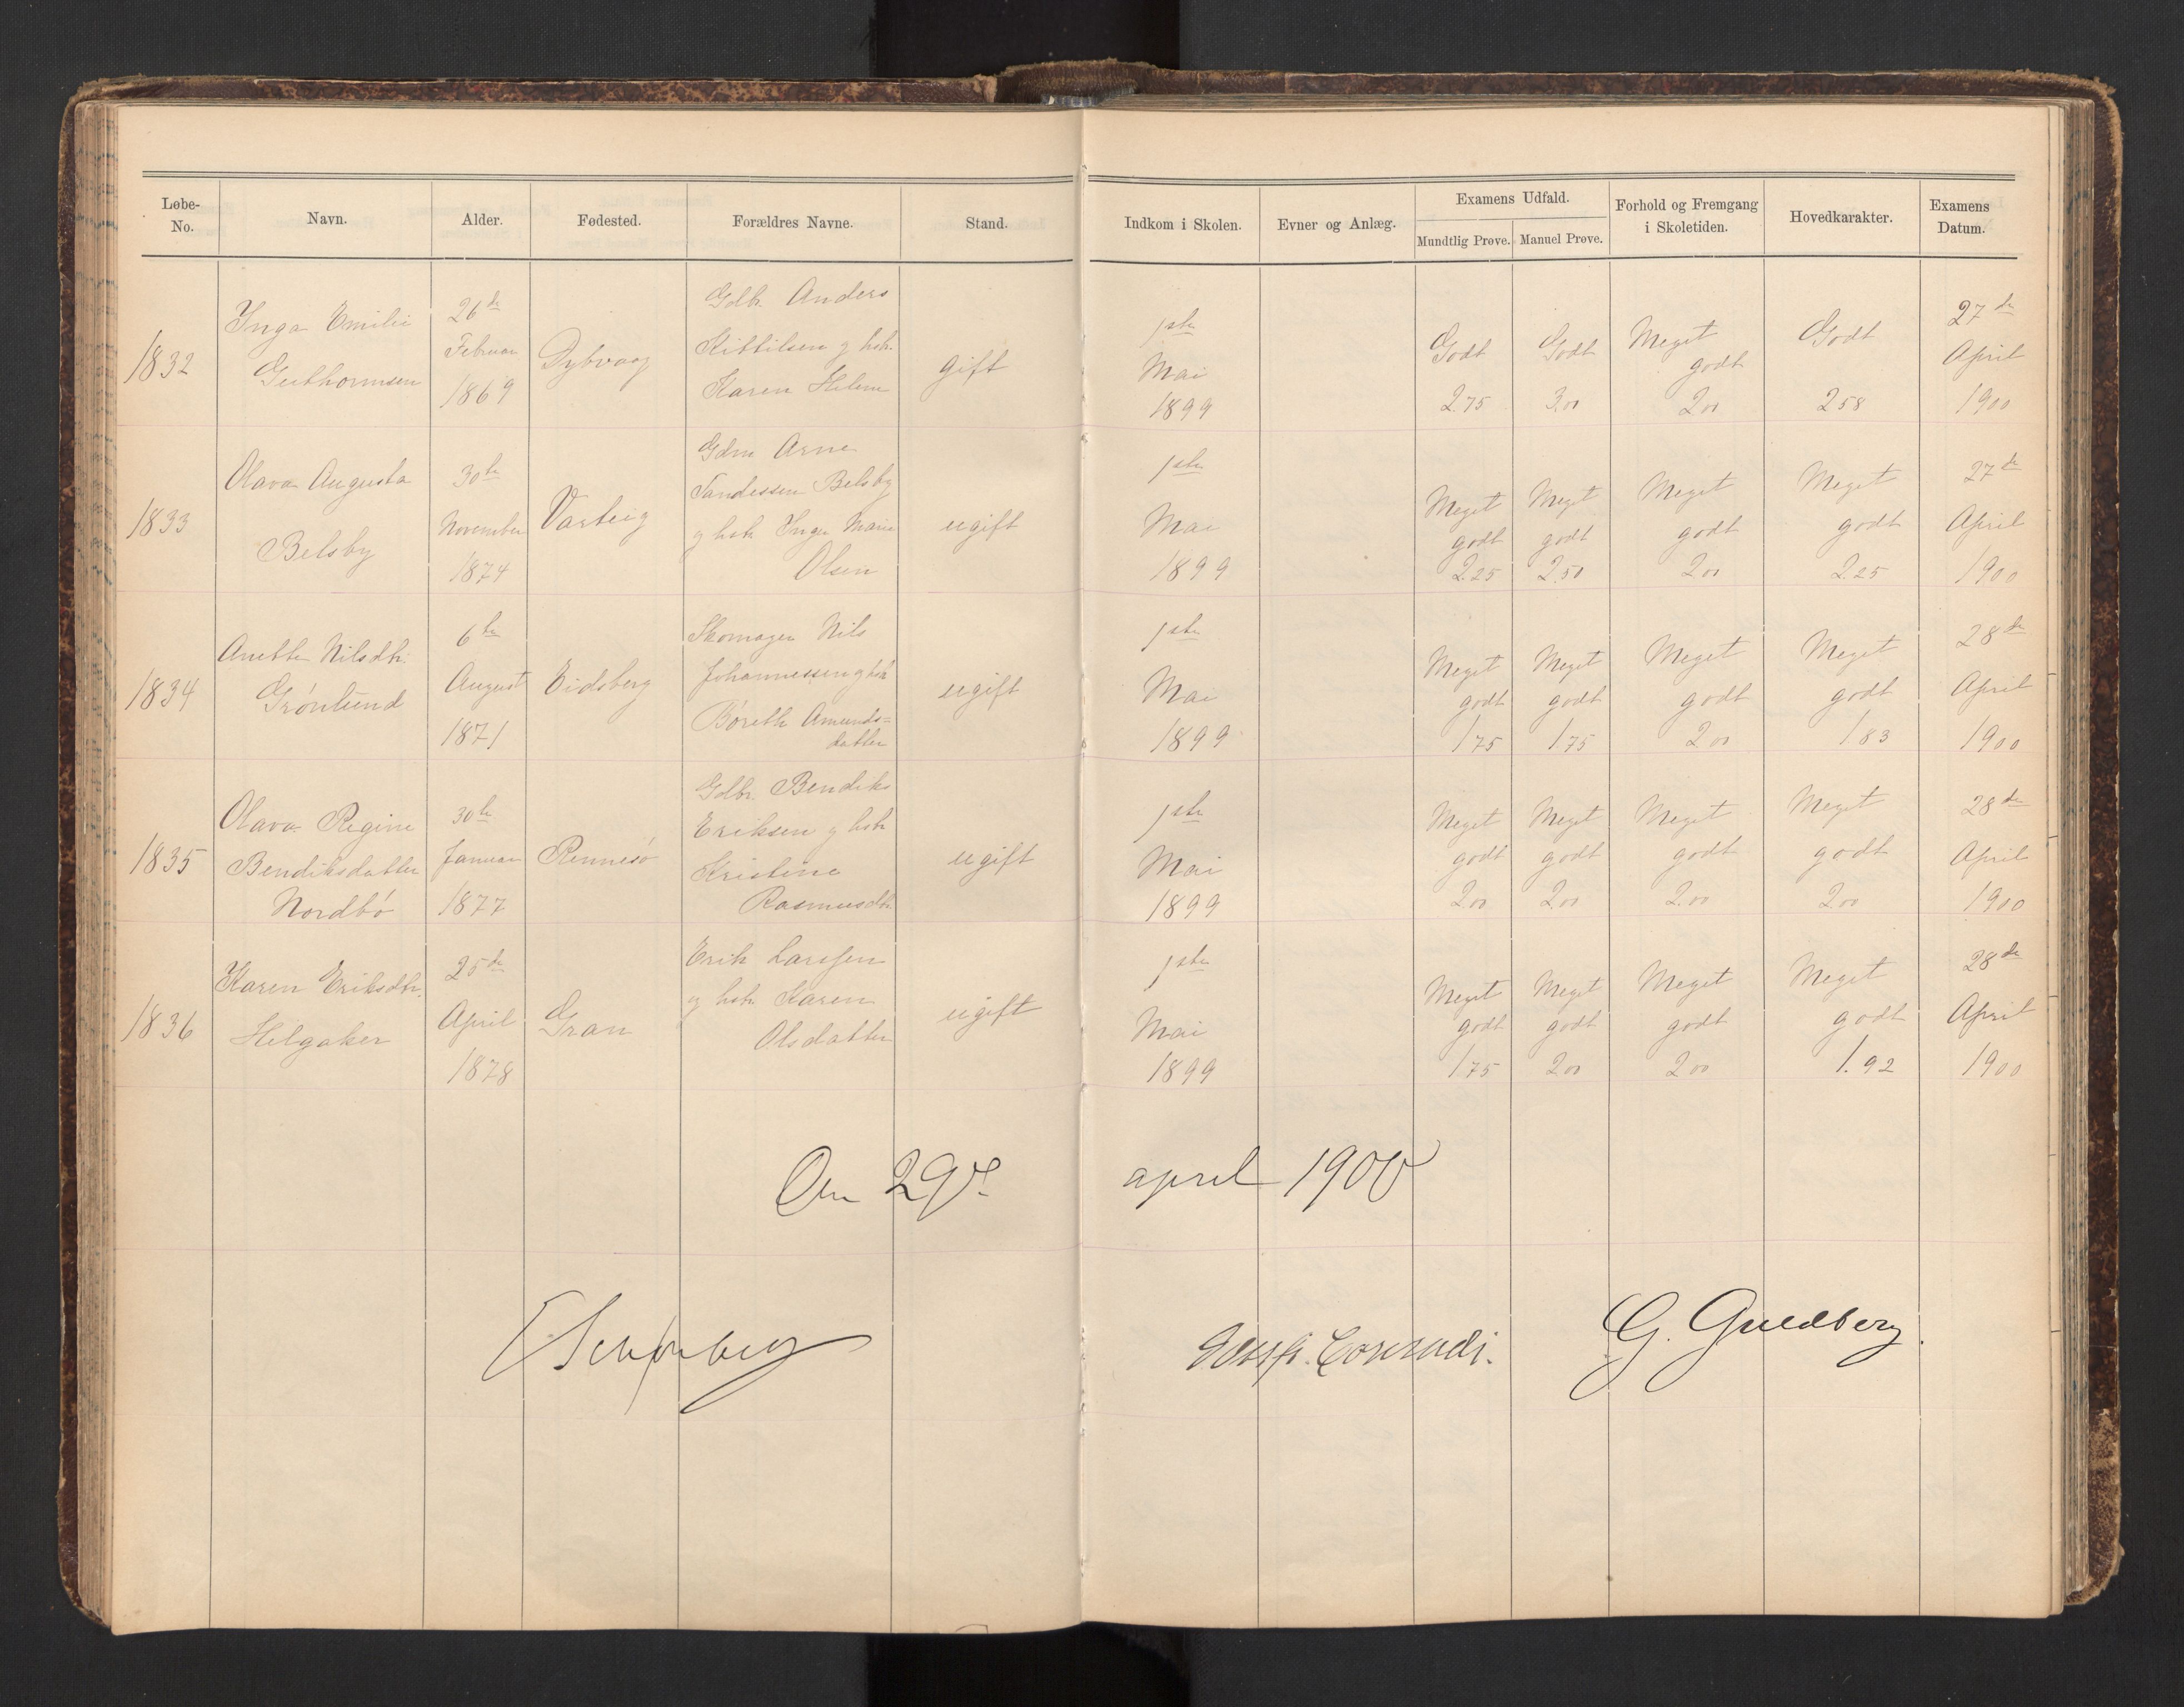 Løbe-No. Navn. Alder. Fødested. Forældres Navne. Stand. Indkom i Skolen. Evner og Anlæg. Examens Udfald. Mundtlig Prøve. Manuel Prøve. Forhold og Fremgang i Skoletiden. Hovedkarakter. Examens Datum.
1832
Inga Emilie
Guthormsen
26de
Februar
1869
Dybvaag
Gdbr. Anders
Kittilsen g hst.
Karen Helene
gift
1ste
Mai
1899
Godt
2.75
Godt
3.00
Meget
godt
2.00
Godt
2.58
27de
April
1900
1833
Olava Augusta
Belsby
30te
November
1874
Varteig
Gdm Arne
Tandessen Belsby
g hst. Inger Marie
Olsen
ugift
1ste
Mai
1899
Meget
godt
2.25
Meget
godt
2.50
Meget
godt
2.00
Meget
godt
2.25
27de
April
1900
1834
Anette Nilsdtr.
Grønlund
6te
August
1871
Eidsberg
Skomager Nils
Johannessen g hst
Børeth Amunds=
datter
ugift
1ste
Mai
1899
Meget
godt
1.75
Meget
godt
1.75
Meget
godt
2.00
Meget
godt
1.83
28de
April
1900
1835
Olava Regine
Bendiksdatter
Nordbø
30te
Januar
1877
Rennesø
Gdbr. Bendiks
Eriksen g hst
Kristine
Rasmusdtr.
ugift
1ste
Mai
1899
Meget
godt
2.00
Meget
godt
2.00
Meget
godt
2.00
Meget
godt
2.00
28de
April
1900
1836
Karen Eriksdtr.
Helgaker
25de
April
1878
Gran
Erik Larssen
g hst. Karen
Olsdatter
ugift
1ste
Mai
1899
Meget
godt
1.75
Meget
godt
2.00
Meget
godt
2.00
Meget
godt
1.92
28de
April
1900
Den 29de april 1900
E Schønberg
Conradi.
G. Guldberg.